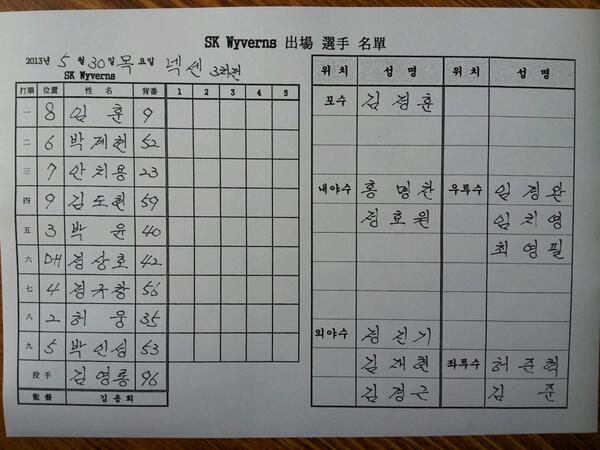 SK Wyverns 出場 選手 名單
2013년 5월 30일 목요일 넥센 3차전
SK Wyverns
打順 位置 姓名 背番 1 2 3 4 5
一 8 임훈 9
二 6 박제현 52
三 7 안치용 23
四 9 김도현 59
五 3 박윤 40
六 DH 정상호 42
七 4 정규창 56
八 2 허웅 35
九 5 박인성 53
投手 김영롱 96
監督 김용희
위치 성명 위치 성명
포수 김정훈
내야수 홍명찬 우투수 임경완
정호원 임치영
최영필
외야수 정진기
김재현 좌투수 허준혁
김경근 김준